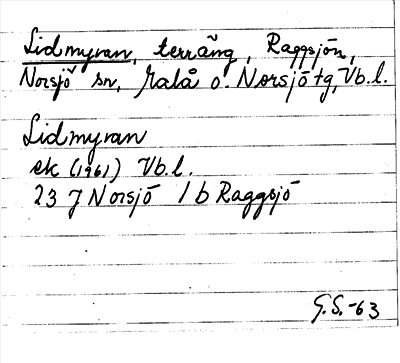 Lidmyran, terräng, Raggsjön,
Norsjö sn, Malå o. Norsjö tg, Vb.l.
Lidmyran
ek (1961) Vb.l.
23 J Norsjö 1 b Raggsjö
G.S.-63